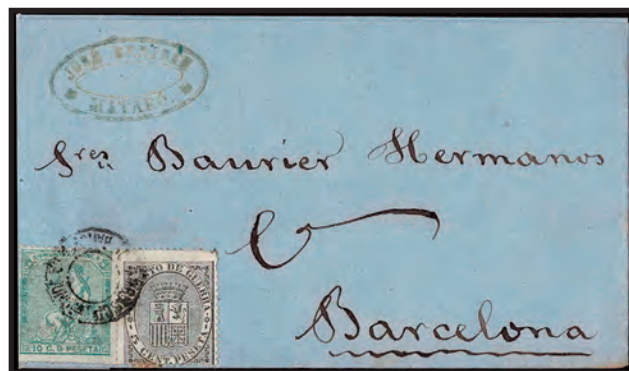 JOSÉ
MATARÓ
Sres Baurier Hermanos
Barcelona
10 C. D PESETA
IMPTO DE GUERRA
5 CENT. PESETA